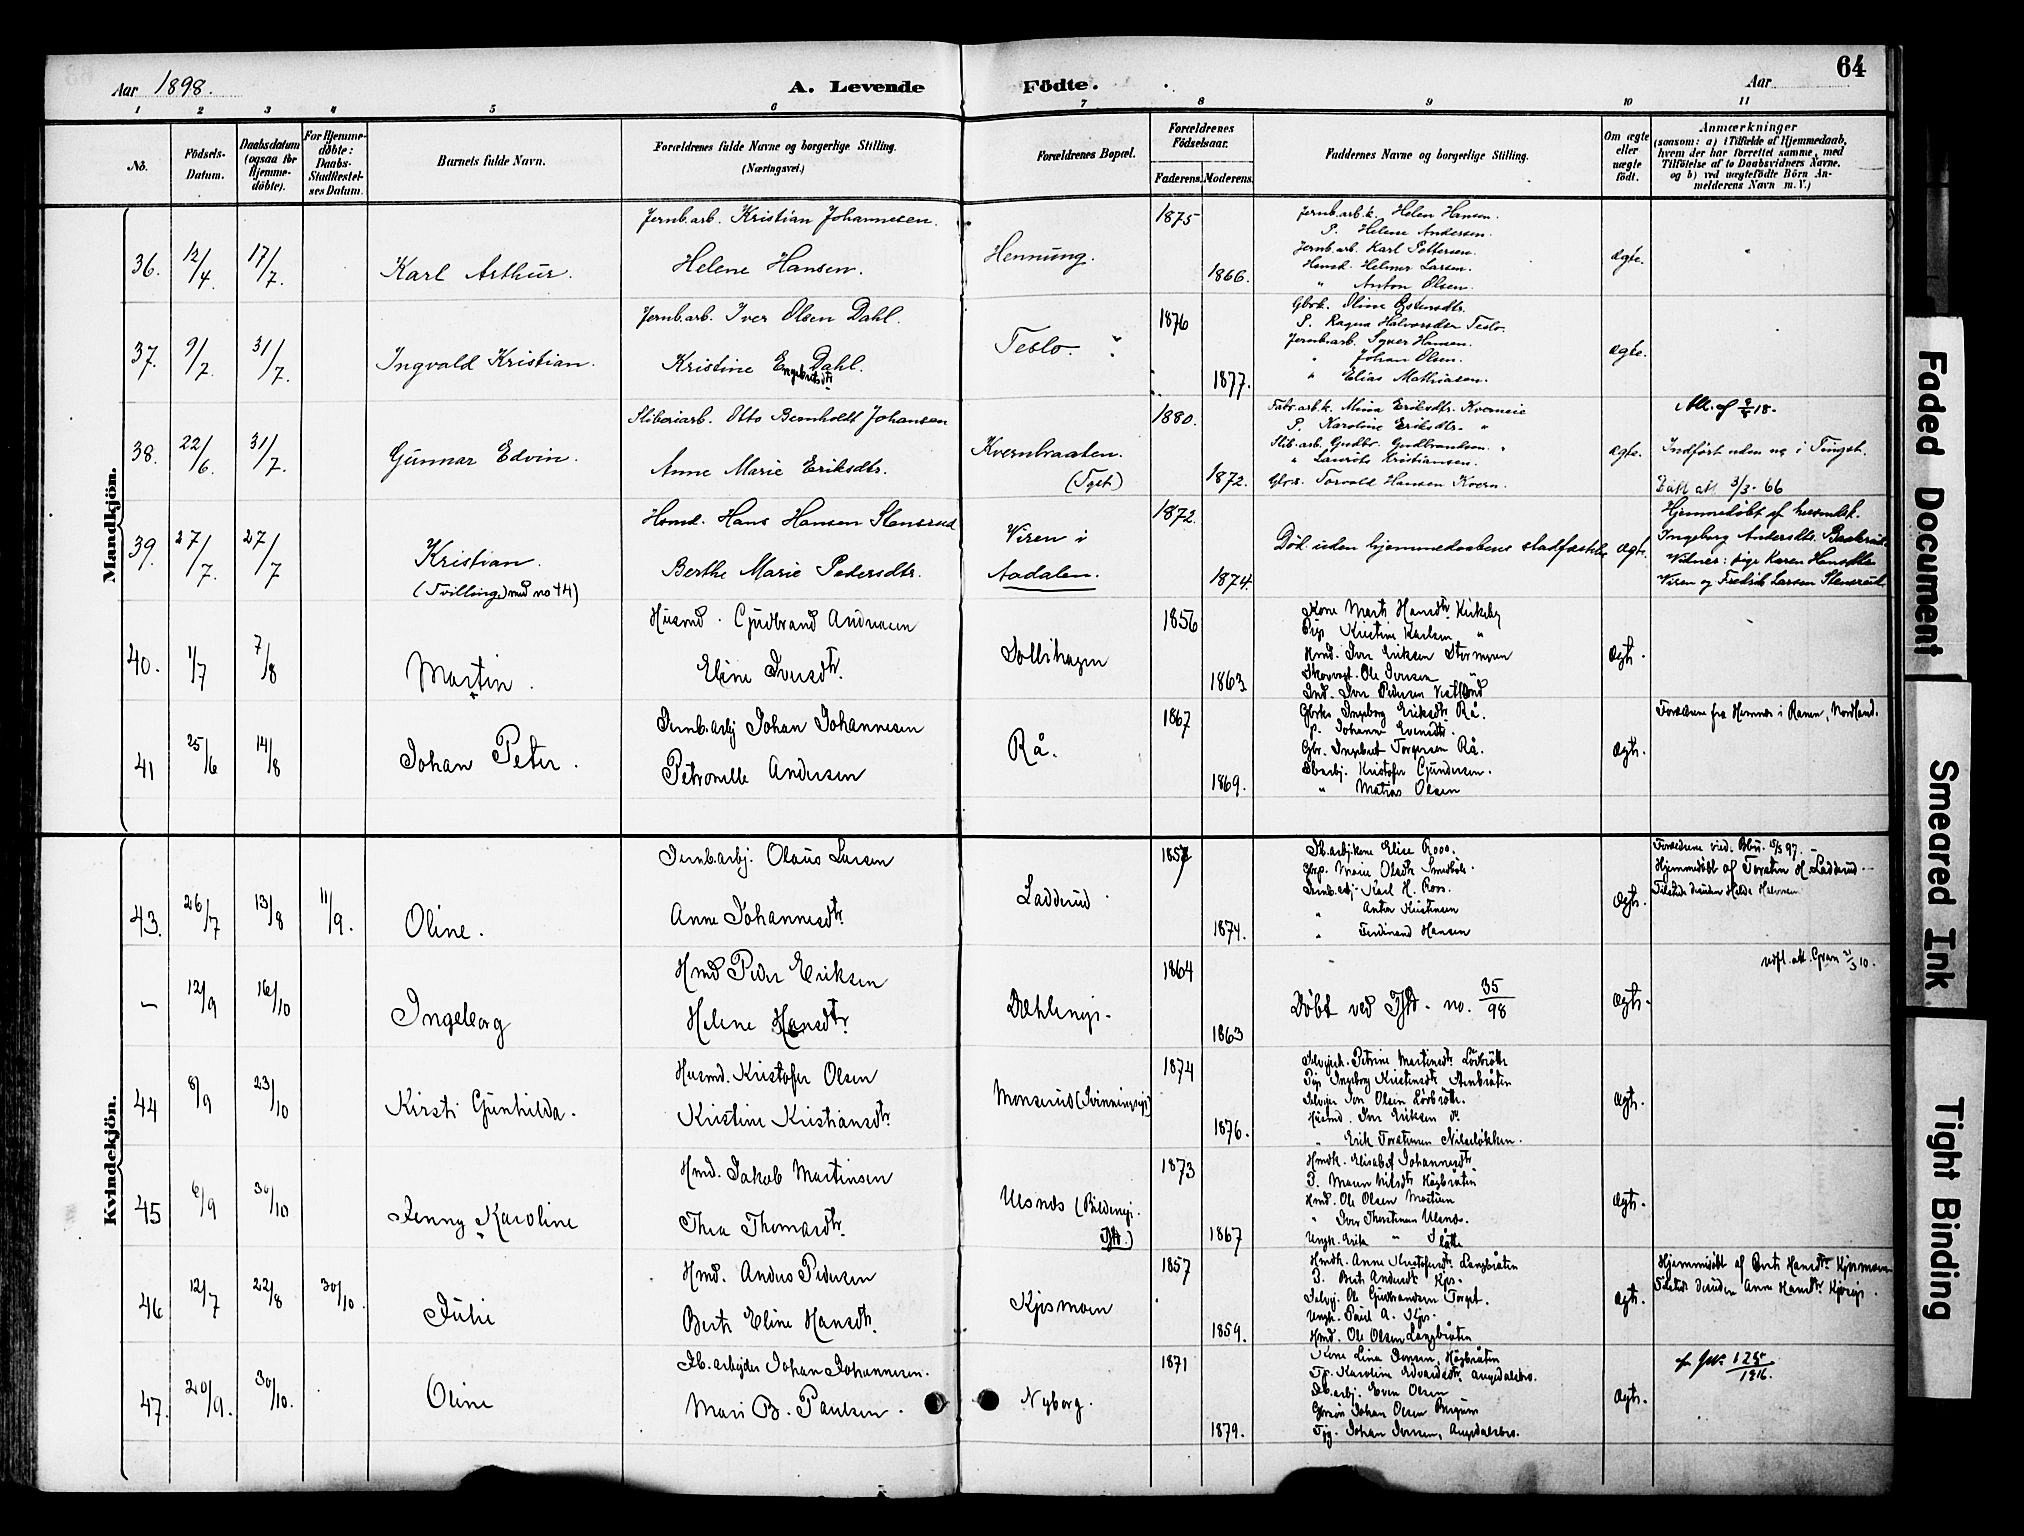 Aar 1898.
A. Levende Födte.
Aar
64
1 2 3 4 5 6 7 8 9 10 11
No.
Födsels-Datum.
Daabsdatum (ogsaa for Hjemme-döbte).
For Hjemme-döbte: Daabs-Stadfæstel-ses Datum.
Barnets fulde Navn.
Forældrenes fulde Navne og borgerlige Stilling.
(Næringsvei.)
Forældrenes Bopæl.
Forældrenes Födselsaar.
Faderens. Moderens.
Faddernes Navne og borgerlige Stilling.
Om ægte eller uægte födt.
Anmærkninger
(saasom: a) i Tilfælde af Hjemmedaab, hvem der har forrettet samme, med Tilföielse af to Daabsvidners Navne. og b) ved uægtefödte Börn An-melderens Navn m. V.)
Mandkjön.
36. 12/4 17/7. Karl Arthur.
Jernb.arb. Kristian Johannesen.
Helene Hansen.
Hennung.
1875
1866.
Jernb.arb.k. Helen Hansen.
P. Helene Andersen.
Jernb.arb. Karl Pettersen.
Hmd. Helmer Larsen.
" Anton Olsen.
ægte.
37. 9/7. 31/7. Ingvald Kristian.
Jernb.arb. Iver Olsen Dahl.
Kristine Engebretsdtr Dahl.
Teslo.
1876
1877.
Gbrk. Oline
P. Ragna Halvorsdtr Teslo.
Jernb.arb. Syver Hansen.
" Johan Olsen.
" Elias Mathiasen.
ægte.
38. 22/6. 31/7. Gunnar Edvin.
Sliberiarb. Otto Bernholdt Johansen
Anne Marie Eriksdtr.
Kvernbraaten.
(Tgst.)
1880.
1872.
Fabr.arb.k. Mina Eriksdtr. Kverneie
P. Karoline Eriksdtr. "
Slib.arb. Gudbr. Gudbrandsen. "
" Laurits Kristiansen.
Gbr.s. Torvald Hansen Kvern.
ægte.
Att. af 2/8 18.
Indført uden no i Tingst.
Dåb att 3/3-66
39. 27/7. 27/7 Kristian.
(Tvilling) med no 44)
Hsmd. Hans Hansen Stensrud
Berthe Marie Pedersdtr.
Viren i
Aadalen.
1872.
1874.
Död uden hjemmedaabens stadfæstelse
ægte.
Hjemmedøbt af husmdsk.
Ingeborg Andersdtr.
Vidner: pige Karen Hansdtr
Viren og Fredrik Larsen Stensrud
40. 1/7 7/8 Martin.
Husmd. Gudbrand Andersen
Eline Iversdtr.
Sollihagen
1856
1863
Kone Marte Hansdtr. Kirkeby
Pige Kristine Karlsen "
Hmd. Iver Eriksen Stormyren
Skovvogt. Ole Iversen "
Ind. Iver Pedersen
ægte.
41 25/6 14/8 Johan Peter.
Jernb.arbj Johan Johannesen
Petronelle Andersen
Rå.
1867
1869.
Gbrks Ingeborg Eriksdtr Rå.
p. Johanne Evensdtr.
Gbr. Ingebret Torgersen Rå.
Jb.arbj. Kristofer Gundersen.
" Matias Olsen
ægte.
Forældrene fra Hemnes i Ranen, Nordland.
Kvindekjön.
43. 26/7 13/8 11/9. Oline.
Jernb.arbj. Olaus Larsen
Anne Johannesdtr.
Ladderud.
1857
1874.
Jb.arbj.kone Elise Roos.
Gbrp. Marie Olsdtr
Jernb.arbj. Karl H. Roos.
" Anton Kristiansen
" Ferdinand Hansen
ægte.
Forældrene viede 5/3 97.
Hjemmedöbt af Torstein H. Ladderud.
Tilstede desuden Helde Halvorsen
– 12/9 16/10 Ingeborg
Hmd Peder Eriksen
Helene Hansdtr.
Dæhlineje.
1864
1863
Döbt ved Tgst. no. 35/98
ægte.
udfl. att. Gran 21/3 10.
44 8/9 23/10 Kirsti Gunhilda.
Husmd. Kristofer Olsen
Kristine Kristiansdtr.
Monserud (Svinningseje)
1874
1876.
Selvejersk. Petrine Martinsdtr.
Pige Ingeborg Kristensdtr.
Selvejer Jon Olsen
Husmd. Iver Eriksen do
" Erik Torstensen Nilseløkken.
ægte.
45 6/9 30/10 Jenny Karoline
Hmd. Jakob Martinsen
Thea Thomasdtr.
Ulsnes
Tgst.)
1873
1867
Hmdk. Elisabet Johannesdtr.
P. Maren Nilsdtr Högbråten
Hmd. Ole Olsen Moetuen
" Iver Thorstensen Ulsnes.
Ungk. Erik " Slåtte
ægte.
46 12/7 22/8 30/10. Julie
Hmd. Anders Pedersen
Berte Eline Hansdtr.
Kjosmoen
1857
1859.
Hmdk. Anne Kristofersdtr. Langbråten
P. Berte Andersdtr Kjos.
Selvej. Ole Gudbrandsen Torget.
Ungk. Paul A. Kjos.
Hmd. Ole Olsen Langbråten
ægte.
Hjemmedöbt af Berte Hansdtr. Kjosmoen
Tilstede desuden Anne Hansdtr.
47. 20/9. 30/10. Oline
Jb.arbejder Johan Johannesen.
Mari B. Paulsen.
Nyborg.
1871
1879.
Kone Lina Jonsen, Högbråten
Tp. Karoline Edvardsdtr. Augedalsbro.
Jb.arbj. Even Olsen
Gbrsön Johan Olsen Bergum
Tjg. Johan Jonsen, Augedalsbro.
ægte.
125/1916.
Faded Document
Smeared Ink
Tight Binding